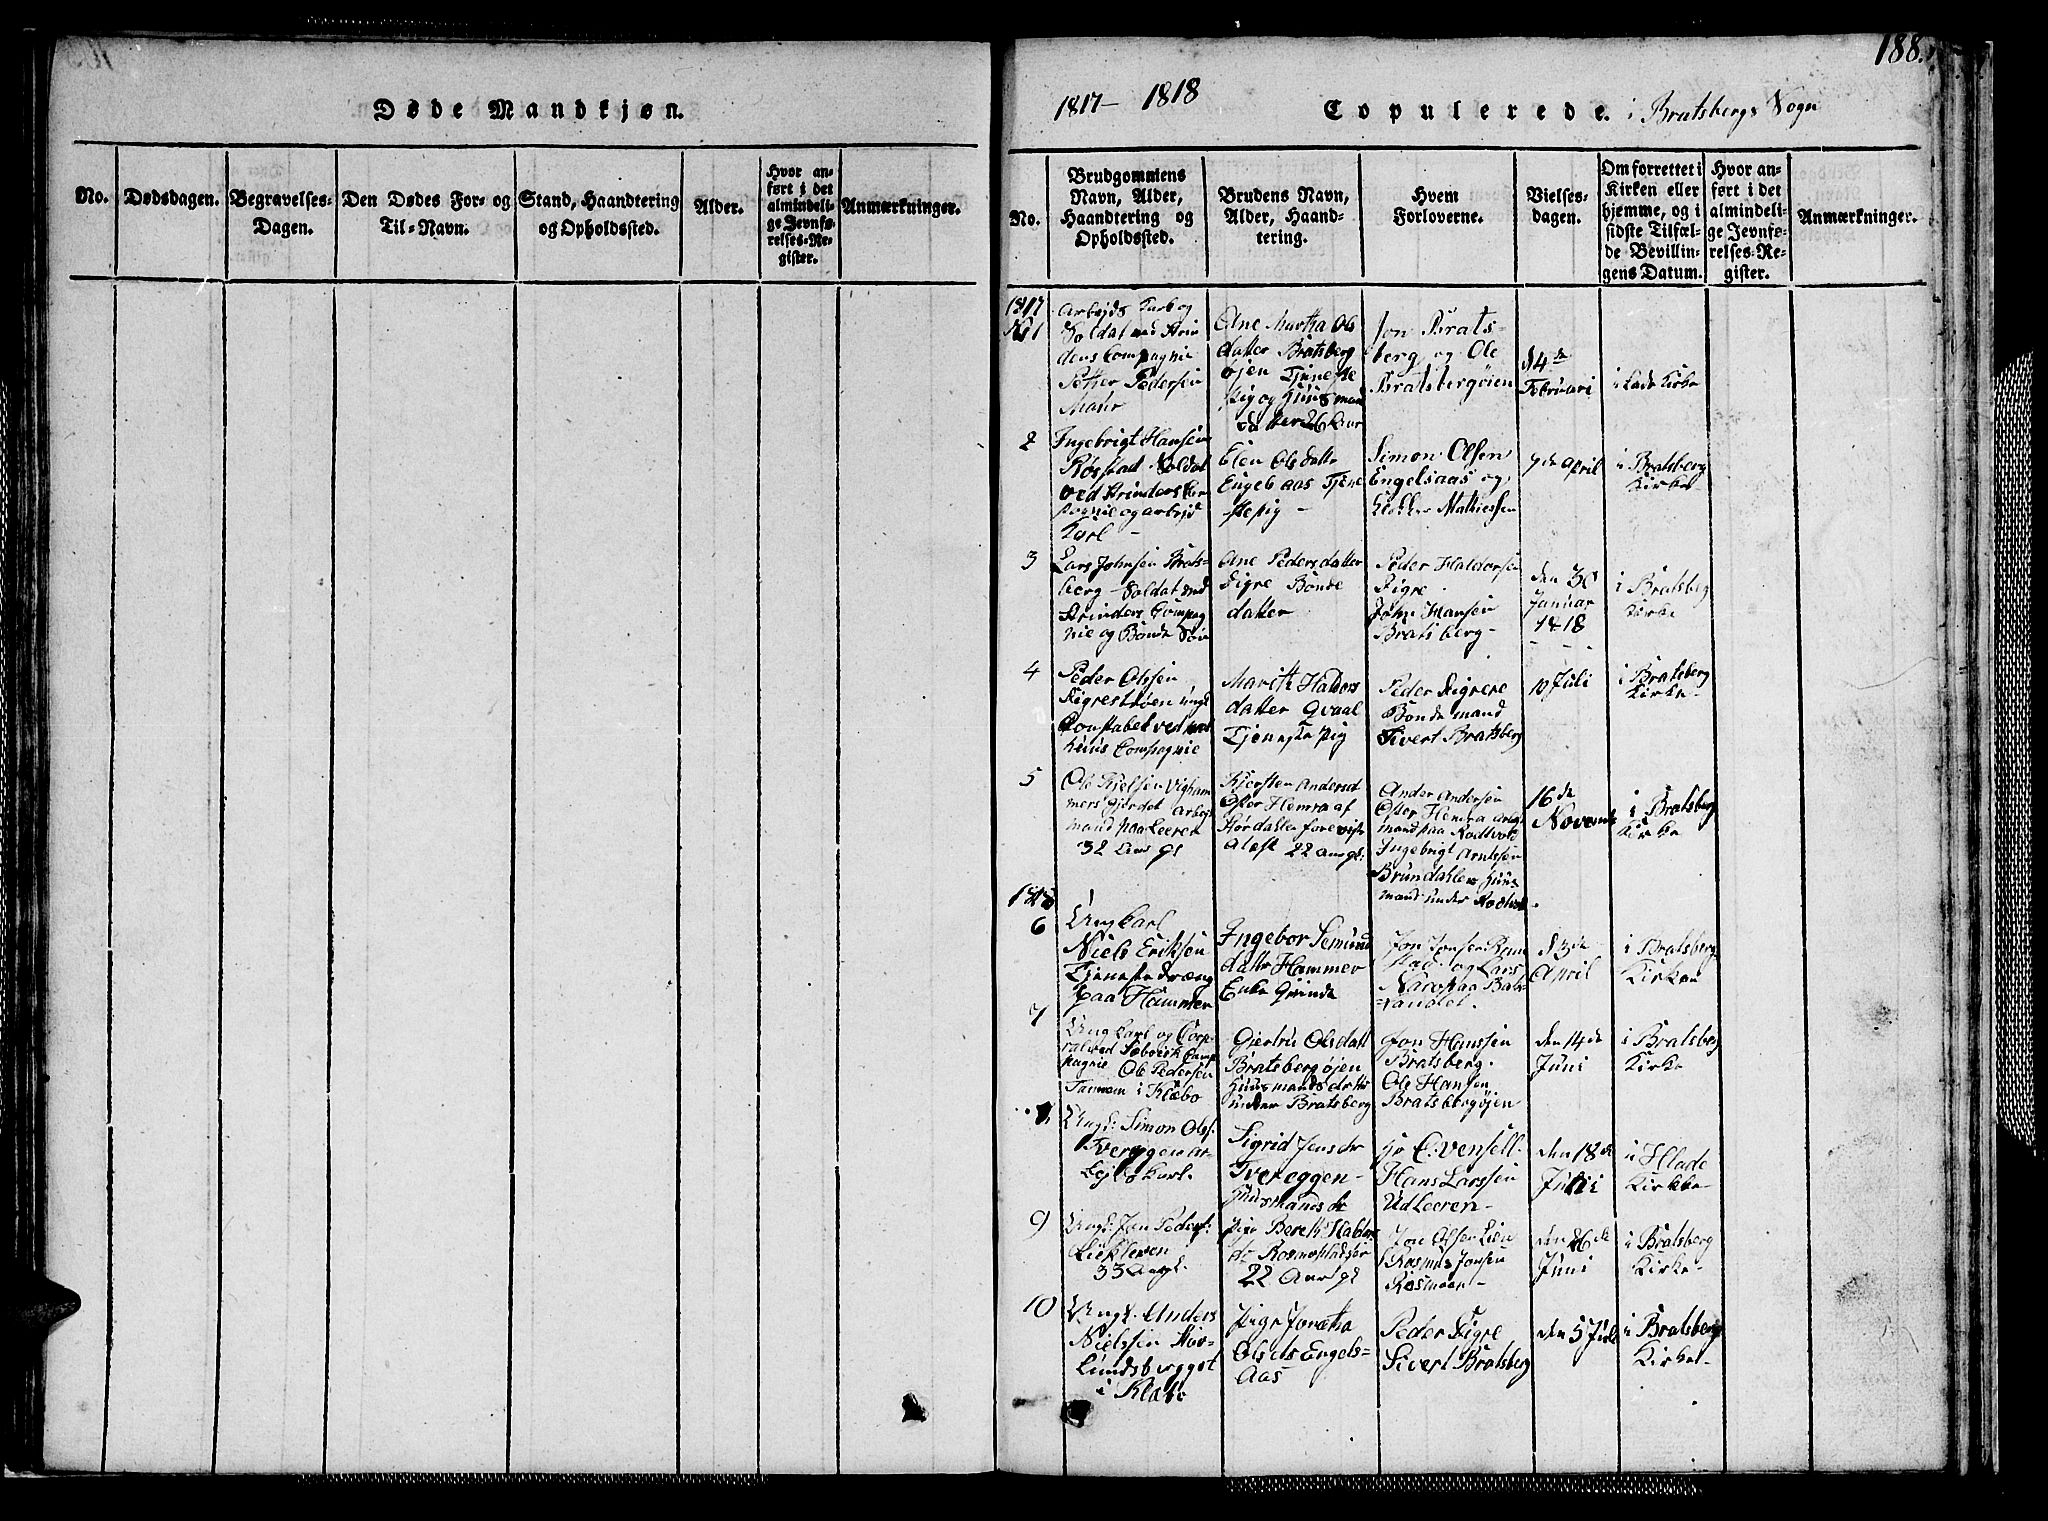 188.
Døde Mandkjøn.
No.
Dødsdagen.
Begravelses-
Dagen.
Den Dødes For- og
Til-Navn.
Stand, Haandtering
og Opholdssted.
Alder.
Hvor an-
ført i det
almindeli-
ge Jevnfø-
relses-Re-
gister.
Anmærkninger.
1817 - 1818
Copulerede. i Bratsbergs Sogn
No.
Brudgommens
Navn, Alder,
Haandtering og
Opholdssted.
Brudens Navn,
Alder, Haand-
tering.
Hvem
Forloverne.
Vielses-
dagen.
Om forrettet i
Kirken eller
hjemme, og i
sidste Tilfæl-
de Bevillin-
gens Datum.
Hvor an-
ført i det
almindeli-
ge Jevnfø-
relses-Re-
gister.
Anmærkninger.
1817
No 1
Arbejds Karl og
Soldat ved Strin
dens Compagnie
Petter Pedersen
Ane Martha Ols
datter Bratsberg
øjen Tjeneste
pig og Huusmand
Jon Brats-
berg og Ole
Bratsbergøien
d 4de
Februari
i Lade Kirke
2
Ingebrigt Hansen
Røstad Soldat
ved Strindens Com
pagnie og arbejds
Karl -
Elen Olsdatter
Engelsaas Tjene
stepig -
Simon Olsen
Engelsaas og
Klokker Mathiessen
7de April
i Bratsberg
Kirke -
3
Lars Johnsen Brats-
berg Soldat ved
Strindens Compag
nie og Bonde Søn
Ane Pedersdatter
Digre Bonde
datter
Peder Haldorsen
Digre
John Hansen
Bratsberg -
den 30
Januar
1818
i Bratsberg
Kirke
4
Peder Olsen
Digrestrøen ungk
Constabel ved
Compagnie
Marith Haldors
datter Qvaal
Tjeneste pig
Peder Digrere
Bonde mand
Sivert Bratsberg
10 Juli
i Bratsberg
Kirke -
5
mand paa Leeren
32 Aar gl
Kjersten Andersd
Øster Hemra af
Størdalen
22 aar gl:
Ander Andersen
Øster Hemra
mand paa Rodtvold
Ingebrigt Arntsen
Brundahlen Huus
mand under Rodtvold.
16de
Novemb
i Bratsberg
Kirke
1818
6
Ung Karl
Niels Eriksen
Tjeneste dræng
paa Hammer
Ingebor Semund
datter Hammer
Enke Qvinde
Jon Jonsen Ran
stad og Lars
d 3de
April
i Bratsberg
Kirke
7
Ung Karl og Corp-
ral ved Selboisk Com
pagnie Ole Pedersen
Tanem i Klæbo
Gjertru Olsdatt
Bratsbergøjen
Huusmands datter
under Bratsberg
Jon Hanssen
Bratsberg.
Ole Hansen
Bratsbergøjen
den 14de
Juni
i Bratsberg
Kirke
Ungk: Simon Ols:
Tvereggen Ar-
bejds Karl.
Sigrid Jensdr
Tvereggen -
Huusmands dr
Hans Larssen
Ud Leeren -
den 18de
Julii
i Hlade
Kirke -
9
Ungk: Jon Peders:
33 Aar gl.
pige Bereth Haldors
22 Aar gl
Jon Olsen Lien
Rasmus Jonsen
den 26de
Juni
i Bratsberg
Kirke -
10
Ungk. Anders
Nielssen Hov-
Lundsbrygget
i Klæbo
pige Joratha
Olsdr Engels-
Aas
Peder Digre
Sivert Bratsberg
den 5 Juli
i Bratsberg
Kirke -